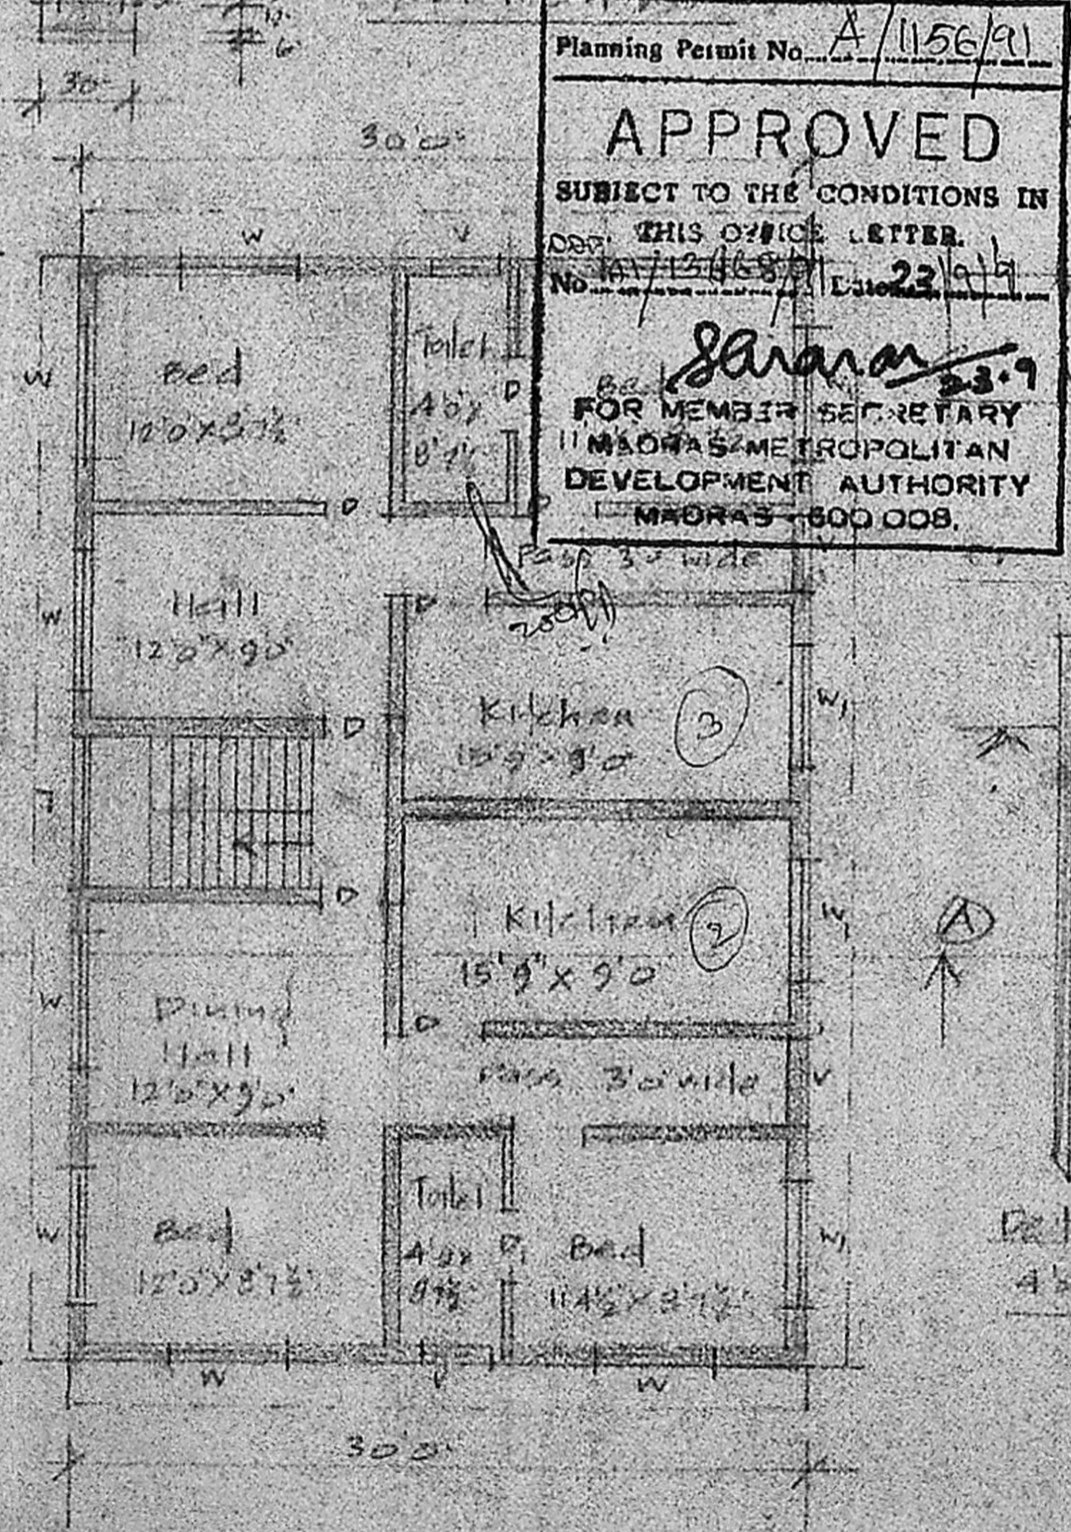 30
Planning Permit No. A/1156/91
APPROVED
SUBJECT TO THE CONDITIONS IN
THIS OFFICE LETTER.
No. Date 23/9/91
23.9
FOR MEMBER SECRETARY
MADRAS METROPOLITAN
DEVELOPMENT AUTHORITY
MADRAS - 600 008.
30'0"
W V
W
Bed
12'0" X 8'7½"
Toilet
4'0" X
8'7½"
D
Bed
D
Pass 3'0" wide
W
Hall
12'0" X 9'0"
D
Kitchen 3
15'9" X 9'0"
W1
D
D
Kitchen 2
15'9" X 9'0"
W1
A
W
Dining
Hall
12'0" X 9'0"
D
Pass 3'0" wide
V
W
Bed
12'0" X 8'7½"
Toilet
4'0" X
8'7½"
D1
Bed
11'4½" X 8'7½"
W1
W V W
30'0"